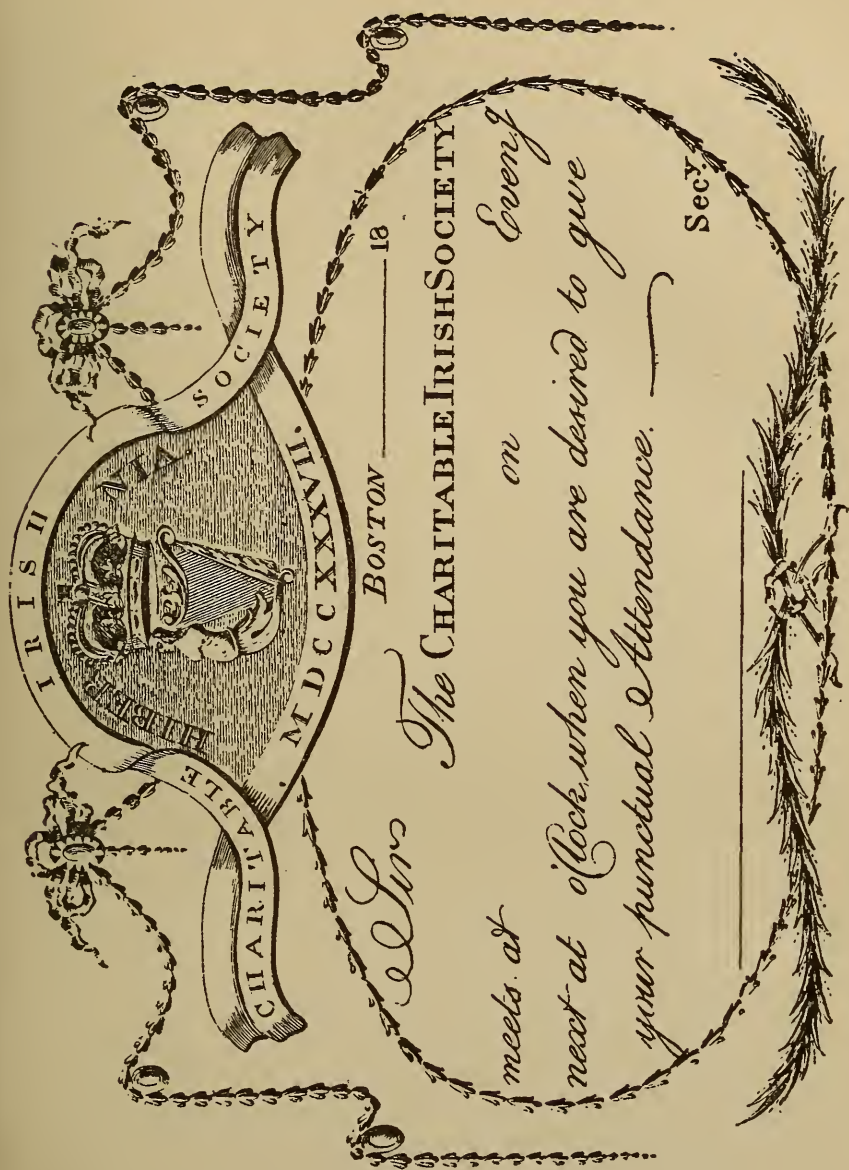 CHARITABLE IRISH SOCIETY
HIBERNIA.
MDCCXXXVII.
BOSTON 18
Sir
The CHARITABLE IRISH SOCIETY
meets at on Eveng
next at o'Clock, when you are desired to give
your punctual Attendance.
Secy.